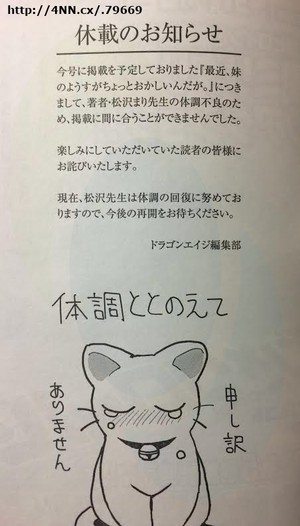 http://4NN.cx/.79669
休載のお知らせ
今号に掲載を予定しておりました『最近、妹
のようすがちょっとおかしいんだが。』につき
まして、著者・松沢まり先生の体調不良のた
め、掲載に間に合うことができませんでした。
楽しみにしていただいていた読者の皆様に
お詫びいたします。
現在、松沢先生は体調の回復に努めてお
りますので、今後の再開をお待ちください。
ドラゴンエイジ編集部
体調ととのえて
申し訳
ありません